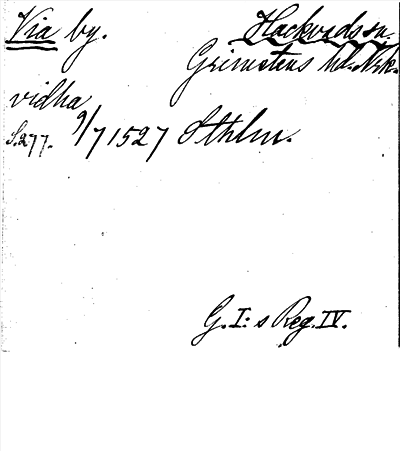 Via by. Hackvads sn.
Grimstens hd. Nrk.
vidha
S. 277. 9/7 1527 Sthlm.
G. I: s Reg. IV.